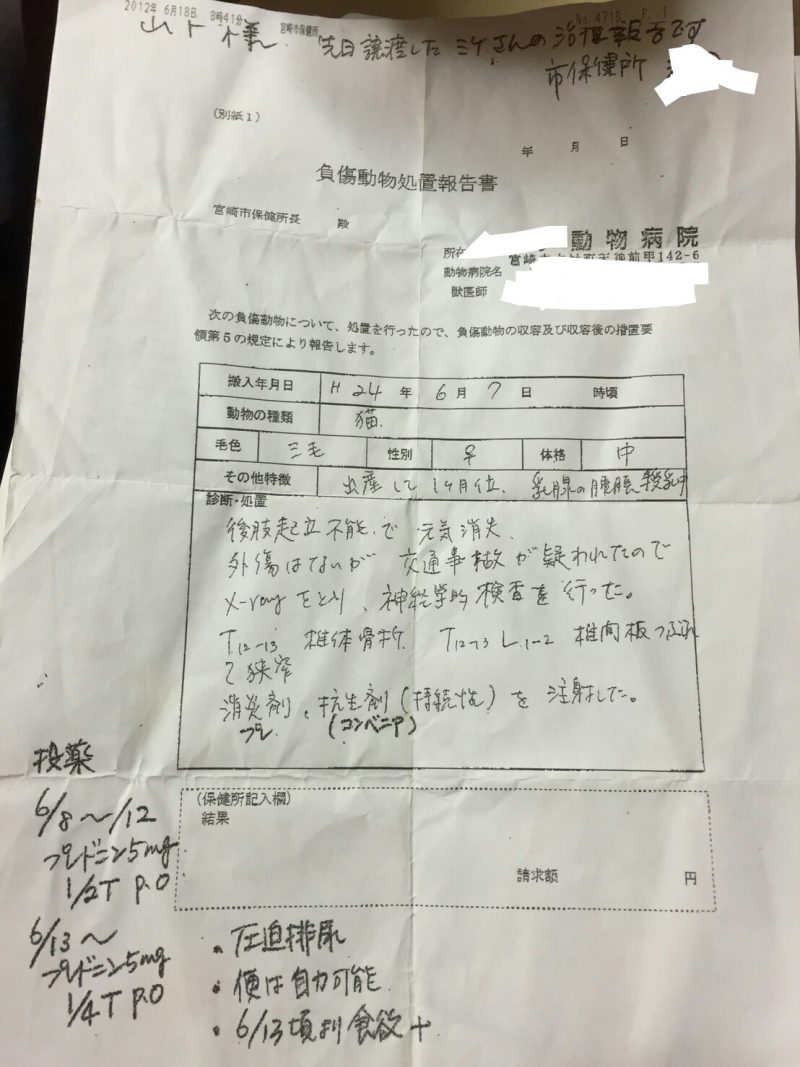 2012年 6月18日 8時41分 宮崎市保健所 No.4718 P. 1
山下様 先日譲渡した ミケさんの治療報告です
市保健所
(別紙1)
年 月 日
負傷動物処置報告書
宮崎市保健所長 殿
動物病院
所在
宮崎市 前甲142-6
動物病院名
獣医師
次の負傷動物について、処置を行ったので、負傷動物の収容及び収容後の措置要
領第5の規定により報告します。
搬入年月日 H 24 年 6 月 7 日 時頃
動物の種類 猫.
毛色 三毛 性別 ♀ 体格 中
その他特徴 出産して1ヶ月位、乳腺の腫脹 授乳中
診断・処置
後肢起立不能で 元気消失.
外傷はないが 交通事故が疑われたので
X-rayをとり、神経学的検査を行った。
T12-13 椎体骨折. T12-13 L1-2 椎間板つぶれ
て狭窄
消炎剤、抗生剤(持続性)を注射した。
プレ (コンベニア)
投薬
6/8〜/12
プレドニン5mg
1/2T P.O
6/13〜
プレドニン5mg
1/4T P.O
(保健所記入欄)
結果
請求額 円
・圧迫排尿
・便は自力可能.
・6/13頃より食欲+